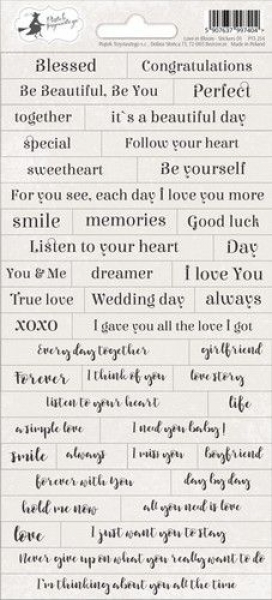 Love in Bloom - Stickers 01 P13-254
5 907637 997404 >
Blessed Congratulations
Be Beautiful, Be You Perfect
together it`s a beautiful day
special Follow your heart
sweetheart Be yourself
For you see, each day I love you more
smile memories Good luck
Listen to your heart Day
You & Me dreamer I love You
True love Wedding day always
XOXO I gave you all the love I got
Every day together girlfriend
Forever I think of you love story
listen to your heart life
a simple love I need you baby!
smile always I miss you boyfriend
forever with you day by day
hold me now all you need is love
love I just want you to stay
Never give up on what you really want to do
I'm thinking about you all the time